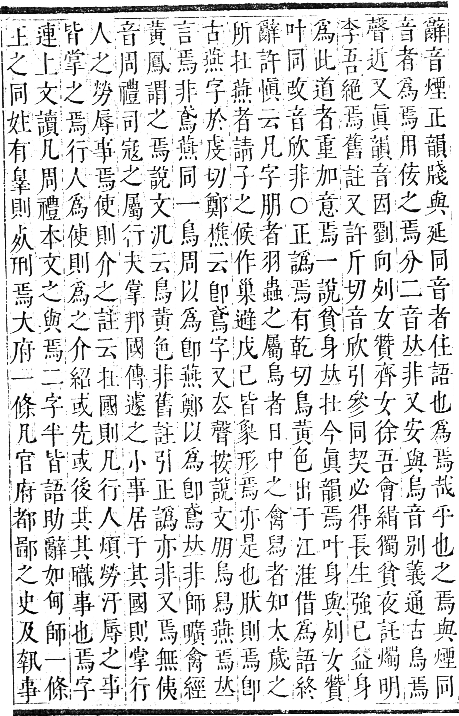 辭音煙正韻牋與延同音者住語也爲焉哉乎也之焉與煙同
音者爲焉用佞之焉分二音𠀤非又安與烏音别義通古烏焉
聲近又眞韻音因劉向列女贊齊女徐吾會緝獨貧夜託燭明
李吾絕焉舊註又許斤切音欣引參同契必得長生強已益身
爲此道者重加意焉一說貧身𠀤在今眞韻焉叶身與列女贊
叶同改音欣非○正譌焉有乾切鳥黃色出于江淮借爲語終
辭許愼云凡字朋者羽蟲之屬烏者日中之禽舄者知太歲之
所在燕者請子之候作巢避戊己皆象形焉亦是也肰則焉卽
古燕字於虔切鄭樵云卽鳶字又厺聲按說文朋烏舄燕焉𠀤
言焉非鳶燕同一鳥周以爲卽燕鄭以爲卽鳶𠀤非師曠禽經
黃鳳謂之焉說文汎云鳥黃色非舊註引正譌亦非又焉無佚
音周禮司寇之屬行夫掌邦國傳遽之小事居于其國則掌行
人之勞辱事焉使則介之註云在國則凡行人煩勞汙辱之事
皆掌之焉行人爲使則爲之介紹或先或後共其職事也焉字
連上文讀凡周禮本文之與焉二字半皆語助辭如甸師一條
王之同姓有辠則𣦸刑焉大府一條凡官府都鄙之吏及執事